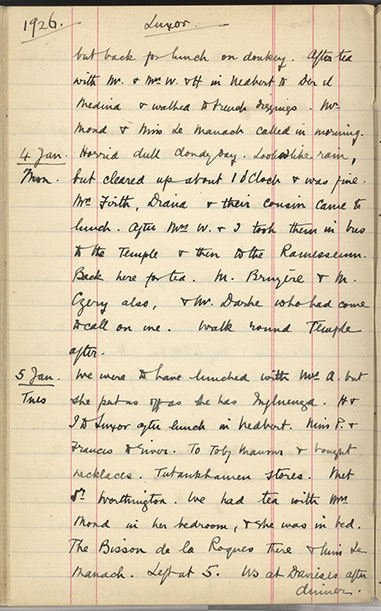 1926. Luxor.
but back for lunch on donkey. After tea
with Mr. & Mrs W. & H in Heabert to Der el
Medina & walked to French diggings. Mr
Mond & Miss Le Manach called in morning.
4 Jan. Horrid dull cloudy day. Looked like rain,
Mon. but cleared up about 1 o'clock & was fine.
Mrs Firth, Diana & their cousin came to
lunch. After Mrs W. & I took them in bus
to the Temple & then to the Ramesseum.
Back here for tea. M. Bruyère & M.
Czerny also, & Mr. Darke who had come
to call on me. Walk round Temple
after.
5 Jan. We were to have lunched with Mrs A. but
Tues she put us off as she has Influenza. H &
I to Luxor after lunch in Heabert. Miss P. &
Francis to river. To Toby & bought
necklaces. Tutankhamen Stores. Met
Dr Worthington. We had tea with Mrs
Mond in her bedroom, & she was in bed.
The Bisson de la Roques there & Miss Le
Manach. Left at 5. Us at Davieses after
dinner.